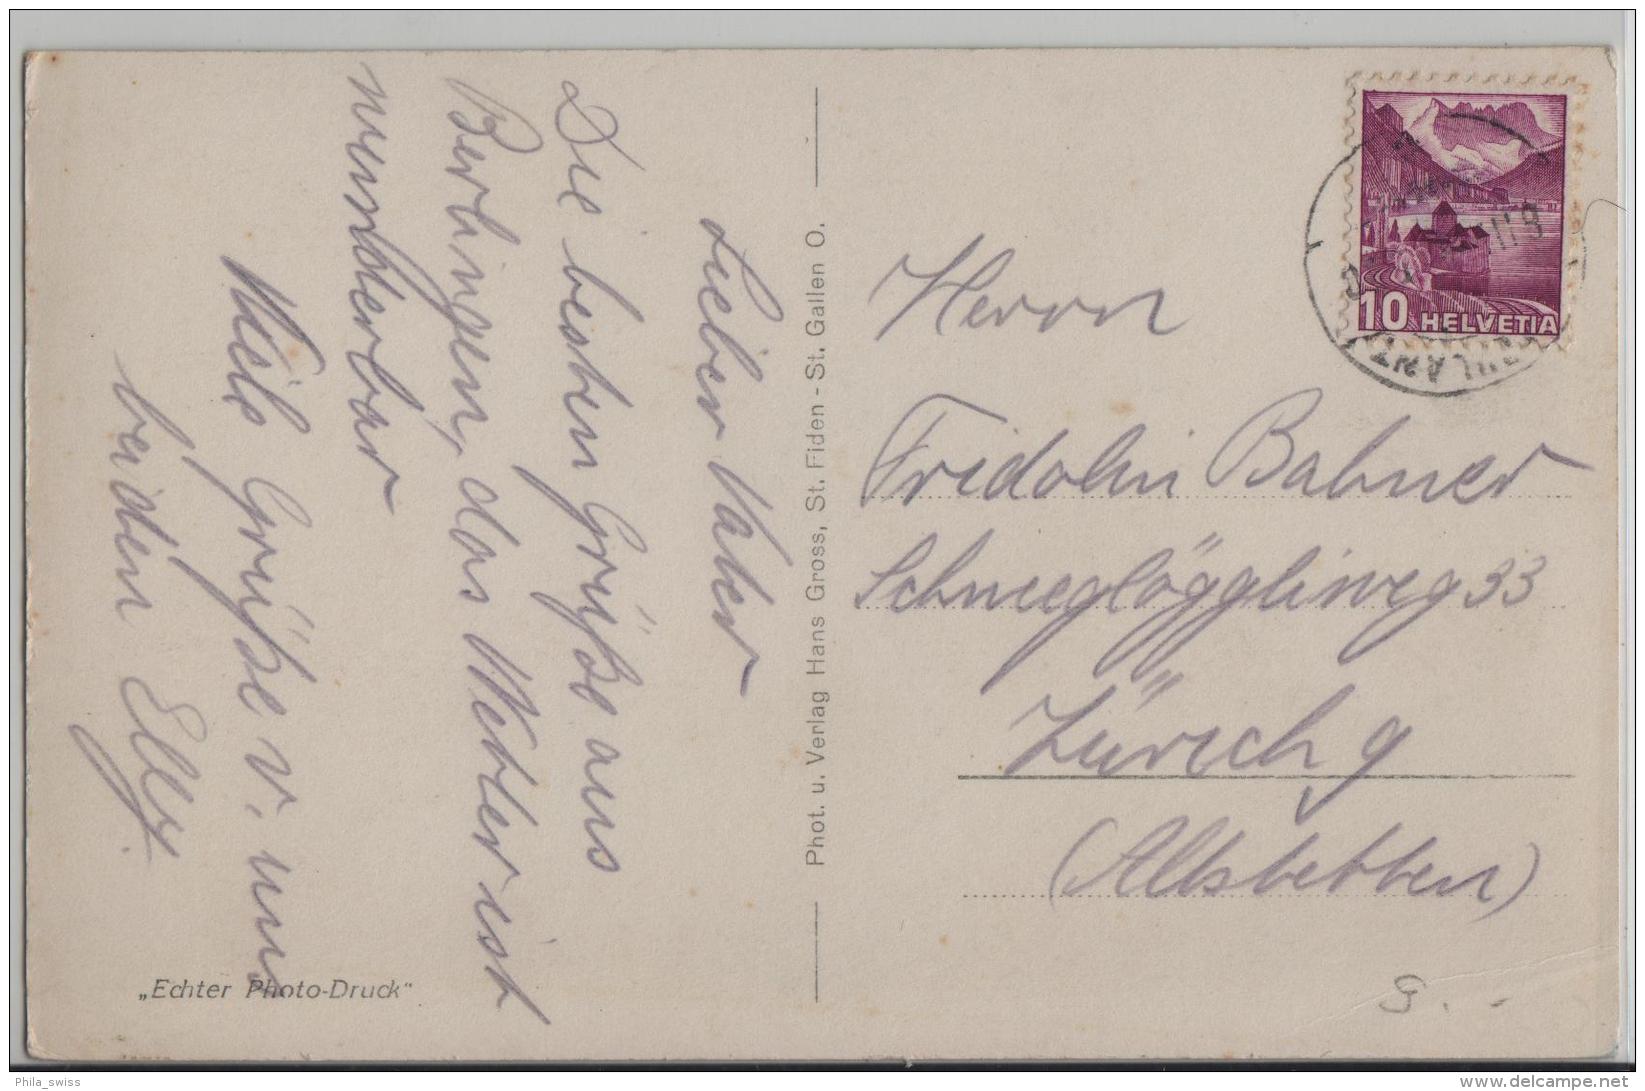 Lieber Vater
Die besten Grüße aus
Berlingen, das Wetter ist
wunderbar
Viele Grüße v. uns
beiden Elly.
Phot. u. Verlag Hans Gross, St. Fiden - St. Gallen O.
„Echter Photo-Druck“
10 HELVETIA
Herrn
Fridolin Bahner
Schneeglöggliweg 33
Zürich 9
(Altstetten)
G. -
Phila_swiss
delcampe.net